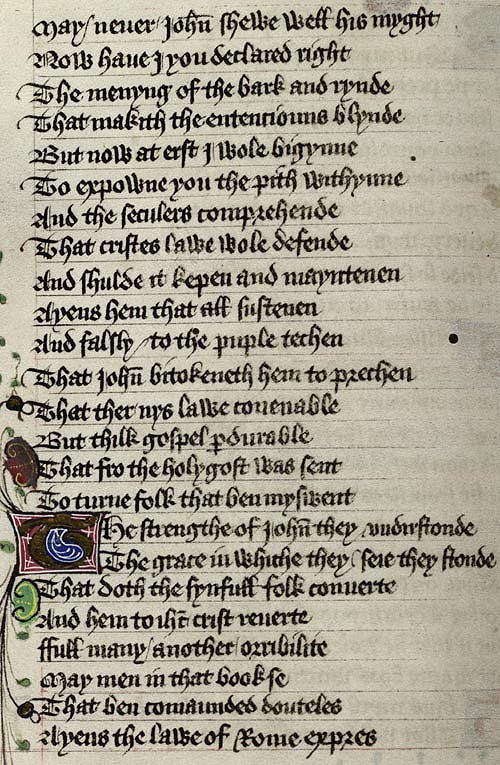 May / never John̄ shewe well his myght
Now have I you declared right
The menyng of the bark and rynde
That makith the entenciouns blynde
But now at erst I wole bigynne
To expowne you the pith withynne
And the seculers comprehende
That cristes lawe wole defende
And shulde it kepen and mayntenen
Ayens hem that all sustenen
And falsly / to the puple techen
That John̄ bitokeneth hem to prechen
That ther nys lawe covenable
But thilk gospel ꝑdurable
That fro the holygost was sent
To turne folk that ben myswent
The strengthe of John̄ they / undirstonde
The grace in whiche they / seie they stonde
That doth the synfull folk converte
And hem to ih̄c crist reverte
ffull many / another / orribilite
May men in that book se
That ben comaunded douteles
Ayens the lawe of Rome expres